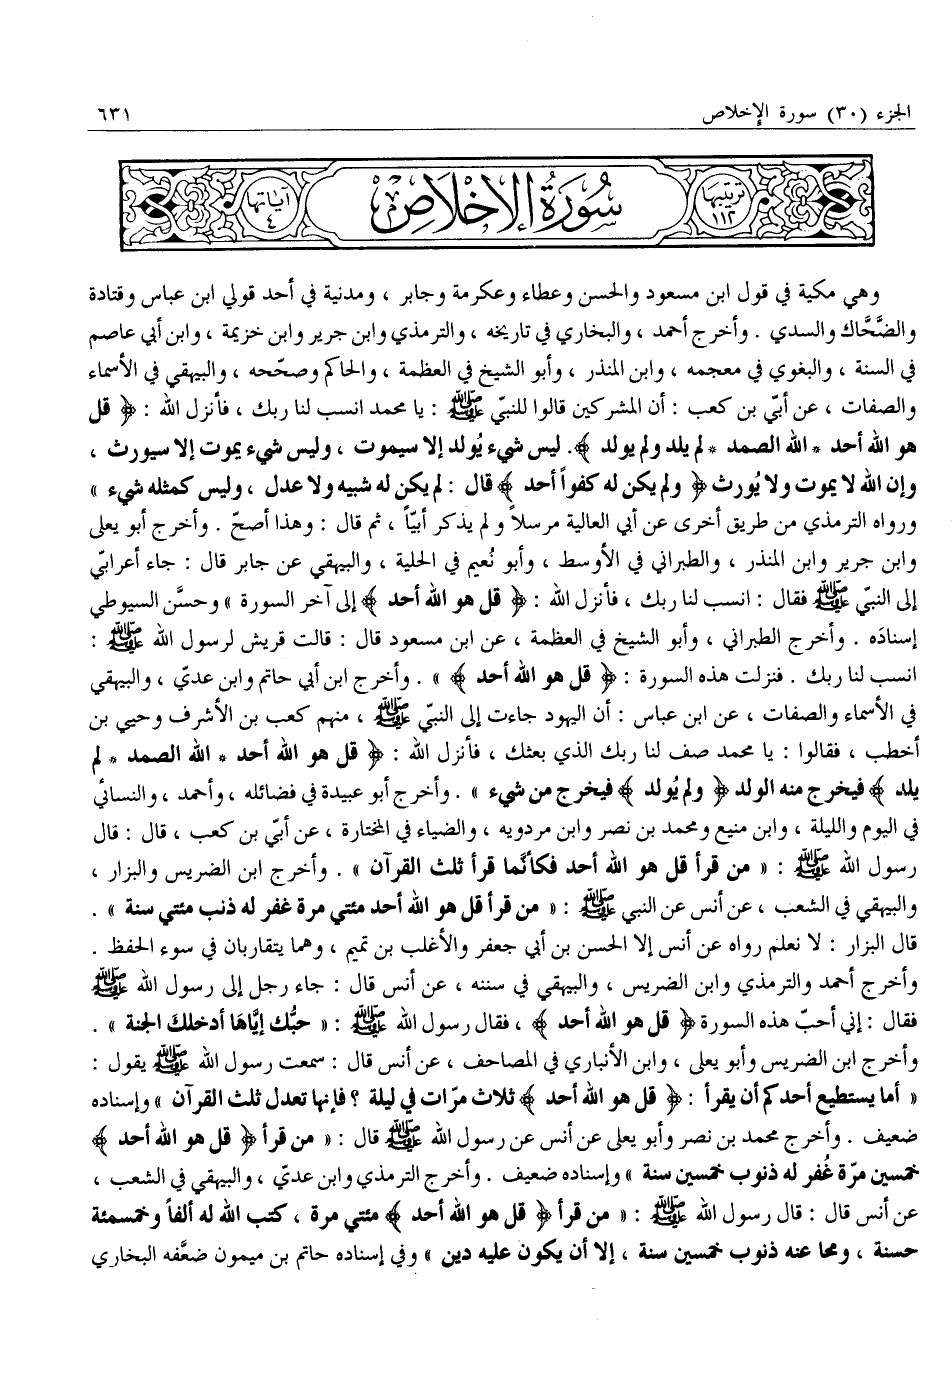 الجزء (٣٠) سورة الإخلاص ٦٣١
ترتيبها ١١٢ سُورَةُ الإِخْلَاصِ آياتها ٤
وهي مكية في قول ابن مسعود والحسن وعطاء وعكرمة وجابر ، ومدنية في أحد قولي ابن عباس وقتادة
والضَّحَّاك والسدي . وأخرج أحمد ، والبخاري في تاريخه ، والترمذي وابن جرير وابن خزيمة ، وابن أبي عاصم
في السنة ، والبغوي في معجمه ، وابن المنذر ، وأبو الشيخ في العظمة ، والحاكم وصحّحه ، والبيهقي في الأسماء
والصفات ، عن أبيّ بن كعب : أن المشركين قالوا للنبيّ ﷺ : يا محمد انسب لنا ربك ، فأنزل الله : ﴿ قل
هو الله أحد * الله الصمد * لم يلد ولم يولد ﴾. ليس شيء يُولد إلا سيموت ، وليس شيء يموت إلا سيورث ،
وإن الله لا يموت ولا يُورث ﴿ ولم يكن له كفواً أحد ﴾ قال : لم يكن له شبيه ولا عدل ، وليس كمثله شيء »
ورواه الترمذي من طريق أخرى عن أبي العالية مرسلاً و لم يذكر أبيّاً ، ثم قال : وهذا أصحّ . وأخرج أبو يعلى
وابن جرير وابن المنذر ، والطبراني في الأوسط ، وأبو نُعيم في الحلية ، والبيهقي عن جابر قال : جاء أعرابيّ
إلى النبيّ ﷺ فقال : انسب لنا ربك ، فأنزل الله : ﴿ قل هو الله أحد ﴾ إلى آخر السورة » وحسَّن السيوطي
إسنادَه . وأخرج الطبراني ، وأبو الشيخ في العظمة ، عن ابن مسعود قال : قالت قريش لرسول الله ﷺ :
انسب لنا ربك . فنزلت هذه السورة : ﴿ قل هو الله أحد ﴾ » . وأخرج ابن أبي حاتم وابن عديّ ، والبيهقي
في الأسماء والصفات ، عن ابن عباس : أن اليهود جاءت إلى النبيّ ﷺ ، منهم كعب بن الأشرف وحيي بن
أخطب ، فقالوا : يا محمد صف لنا ربك الذي بعثك ، فأنزل الله : ﴿ قل هو الله أحد * الله الصمد * لم
يلد ﴾ فيخرج منه الولد ﴿ ولم يُولد ﴾ فيخرج من شيء » . وأخرج أبو عبيدة في فضائله ، وأحمد ، والنسائي
في اليوم والليلة ، وابن منيع ومحمد بن نصر وابن مردويه ، والضياء في المختارة ، عن أبيّ بن كعب ، قال : قال
رسول الله ﷺ : « من قرأ قل هو الله أحد فكأنَّما قرأ ثلث القرآن » . وأخرج ابن الضريس والبزار ،
والبيهقي في الشعب ، عن أنس عن النبي ﷺ : « من قرأ قل هو الله أحد مئتي مرة غفر له ذنب مئتي سنة » .
قال البزار : لا نعلم رواه عن أنس إلا الحسن بن أبي جعفر والأغلب بن تميم ، وهما يتقاربان في سوء الحفظ .
وأخرج أحمد والترمذي وابن الضريس ، والبيهقي في سننه ، عن أنس قال : جاء رجل إلى رسول الله ﷺ
فقال : إني أحبّ هذه السورة ﴿ قل هو الله أحد ﴾ ، فقال رسول الله ﷺ : « حبُّك إيَّاهَا أدخلكَ الجنة » .
وأخرج ابن الضريس وأبو يعلى ، وابن الأنباري في المصاحف ، عن أنس قال : سمعت رسول الله ﷺ يقول :
« أما يستطيع أحدكم أن يقرأ : ﴿ قل هو الله أحد ﴾ ثلاث مرّات في ليلة ؟ فإنها تعدل ثلث القرآن » وإسناده
ضعيف . وأخرج محمد بن نصر وأبو يعلى عن أنس عن رسول الله ﷺ قال : « من قرأ ﴿ قل هو الله أحد ﴾
خمسين مرّة غُفر له ذنوب خمسين سنة » وإسناده ضعيف . وأخرج الترمذي وابن عديّ ، والبيهقي في الشعب ،
عن أنس قال : قال رسول الله ﷺ : « من قرأ ﴿ قل هو الله أحد ﴾ مئتي مرة ، كتب الله له ألفاً وخمسمئة
حسنة ، ومحا عنه ذنوب خمسين سنة ، إلا أن يكون عليه دين » وفي إسناده حاتم بن ميمون ضعَّفه البخاري